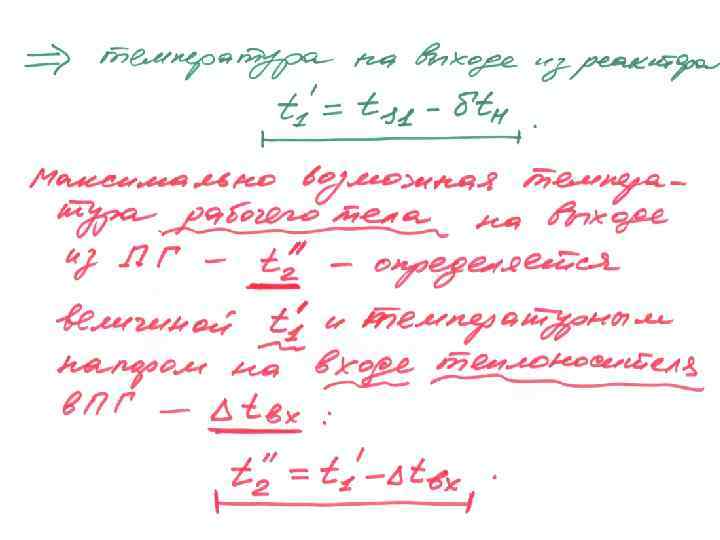 ⇒ температура на выходе из реактора
t₁' = tₛ₁ - δtн.
Максимально возможная темпера-
тура рабочего тела на выходе
из ПГ - t₂" - определяется
величиной t₁' и температурным
напором на входе теплоносителя
в ПГ - Δtвх :
t₂" = t₁' - Δtвх.